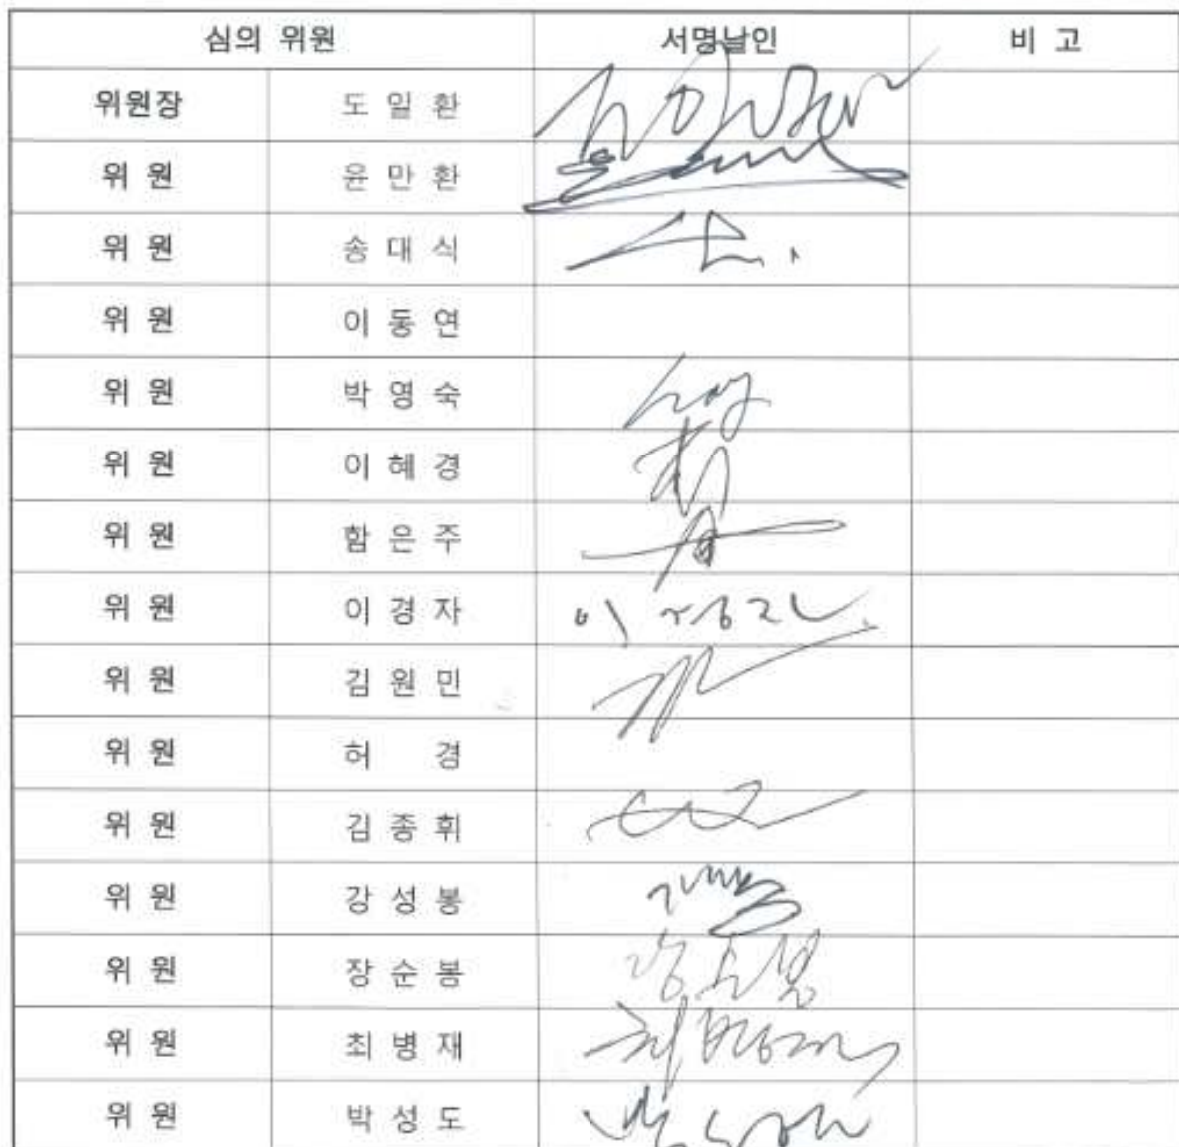 심의 위원 서명날인 비 고
위원장 도 일 환
위 원 윤 만 환
위 원 송 대 식
위 원 이 동 연
위 원 박 영 숙
위 원 이 혜 경
위 원 함 은 주
위 원 이 경 자 이경자
위 원 김 원 민
위 원 허 경
위 원 김 종 휘
위 원 강 성 봉
위 원 장 순 봉
위 원 최 병 재 최병재
위 원 박 성 도